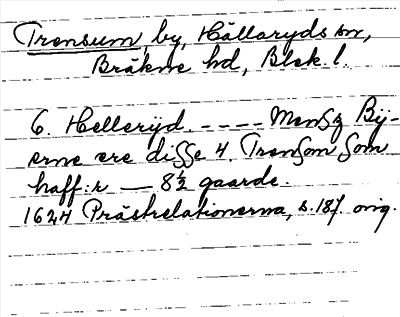 Trensum, by, Hällaryds sn,
Bräkne hd, Blek. l.
6. Hellerijd. - - - - Menß Bÿ-
erne ere diſſe 4. Trenſom ſom
haff:r — 8½ gaarde.
1624 Prästrelationerna, s. 187. orig.